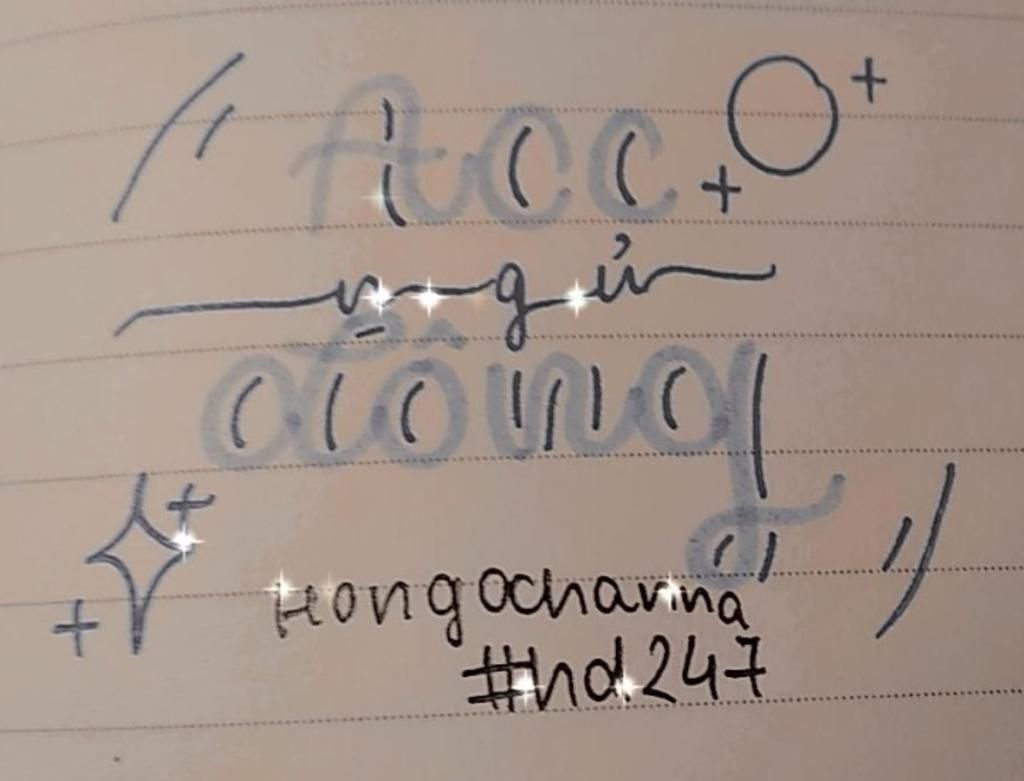 Acc
ngủ
đông
Hongocharina
#hd.247